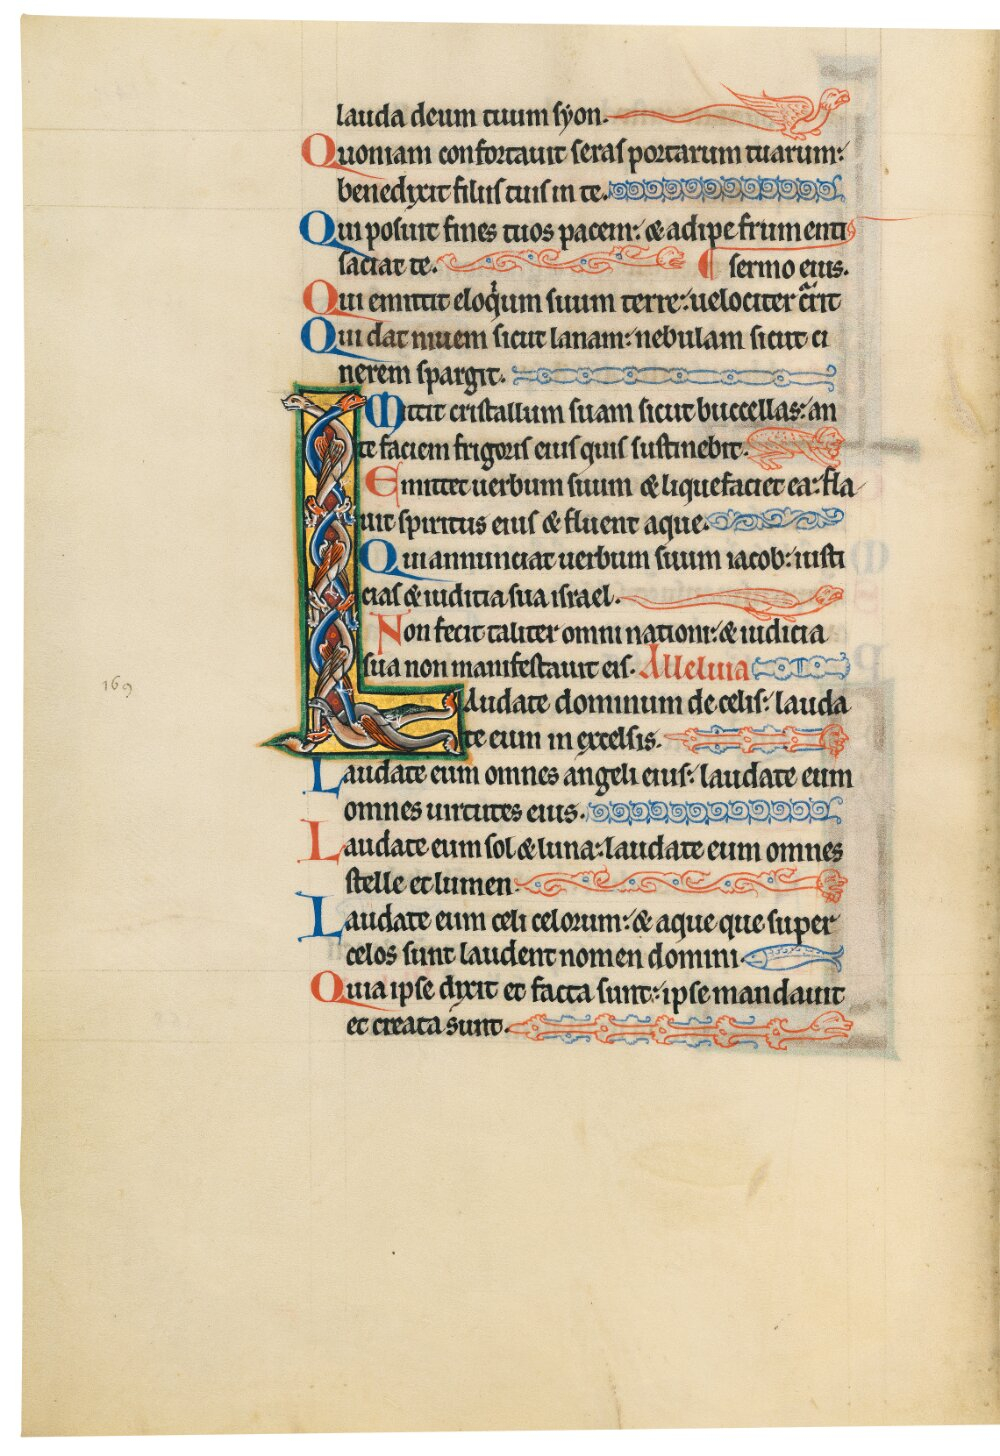 lauda deum tuum syon.
Quoniam confortauit seras portarum tuarum:
benedixit filiis tuis in te.
Qui posuit fines tuos pacem: & adipe frumenti
saciat te. sermo eius.
Qui emittit eloqium suum terre: uelociter crit
Qui dat niuem sicut lanam: nebulam sicut ci
nerem spargit.
Mittit cristallum suam sicut buccellas: an
te faciem frigoris eius quis sustinebit.
Emittet uerbum suum & liquefaciet ea: fla
uit spiritus eius & fluent aque.
Qui annunciat uerbum suum iacob: iusti
cias & iudicia sua israel.
Non fecit taliter omni nationi: & iudicia
sua non manifestauit eis. Alleluia
Laudate dominum de celis: lauda
te eum in excelsis.
Laudate eum omnes angeli eius: laudate eum
omnes uirtutes eius.
Laudate eum sol & luna: laudate eum omnes
stelle et lumen.
Laudate eum celi celorum: & aque que super
celos sunt laudent nomen domini.
Quia ipse dixit et facta sunt: ipse mandauit
et creata sunt.
169